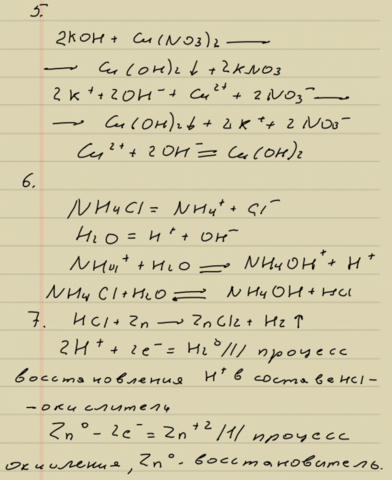 5.
2KOH + Cu(NO3)2 —
— Cu(OH)2 ↓ + 2KNO3
2K⁺ + 2OH⁻ + Cu²⁺ + 2NO3⁻ —
→ Cu(OH)2↓ + 2K⁺ + 2NO3⁻
Cu²⁺ + 2OH⁻ = Cu(OH)2
6.
NH4Cl = NH4⁺ + Cl⁻
H2O = H⁺ + OH⁻
NH4⁺ + H2O ⇌ NH4OH⁺ + H⁺
NH4Cl + H2O ⇌ NH4OH + HCl
7. HCl + Zn → ZnCl2 + H2 ↑
2H⁺ + 2e⁻ = H2⁰ /1/ процесс
восстановления H⁺ в составе HCl-
-окислитель
Zn⁰ - 2e⁻ = Zn⁺² /1/ процесс
окисления, Zn⁰ - восстановитель.